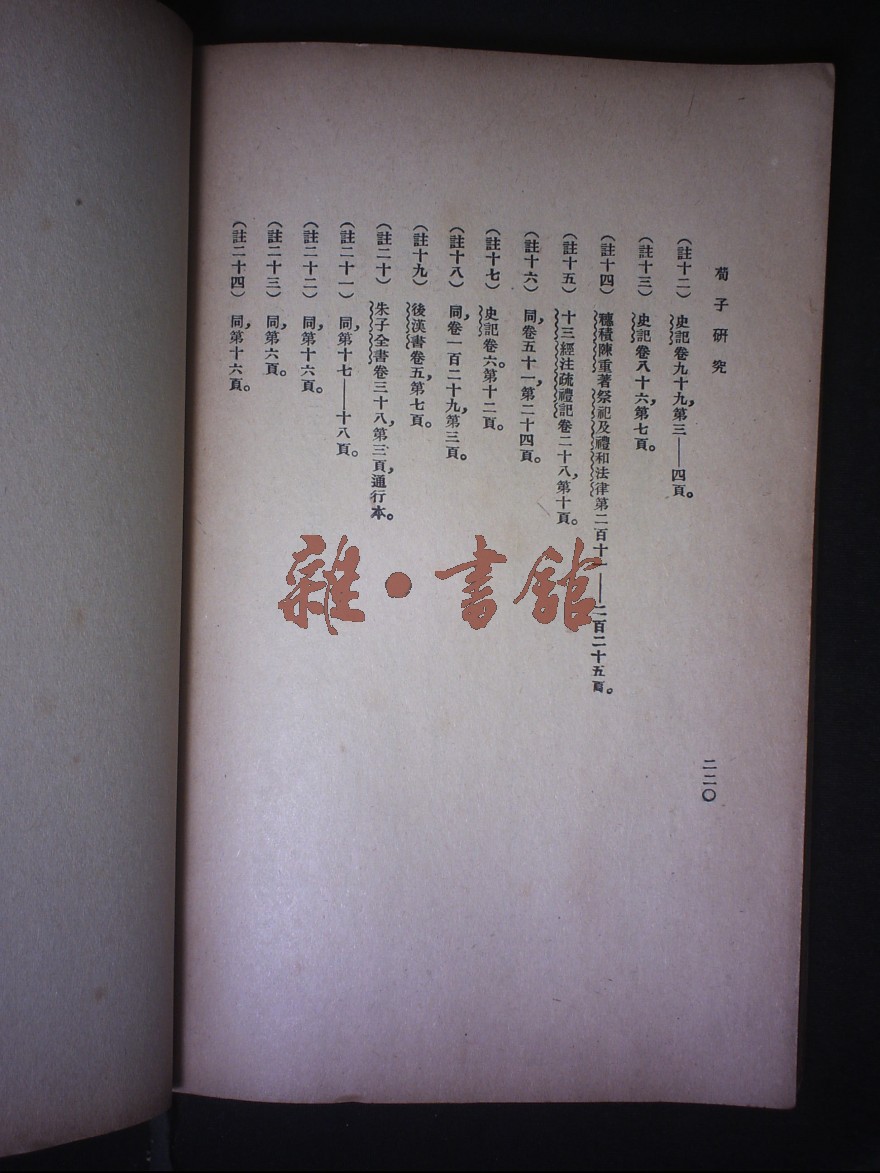 荀子研究
(註十二) 史記卷九十九,第三——四頁。
(註十三) 史記卷八十六,第七頁。
(註十四) 穗積陳重著祭祀及禮和法律第二百十一——二百二十五頁。
(註十五) 十三經注疏禮記卷二十八,第十頁。
(註十六) 同,卷五十一,第二十四頁。
(註十七) 史記卷六。第十二頁。
(註十八) 同,卷一百二十九,第三頁。
(註十九) 後漢書卷五,第七頁。
(註二十) 朱子全書卷三十八,第三頁,通行本。
(註二十一) 同,第十七——十八頁。
(註二十二) 同,第十六頁。
(註二十三) 同,第六頁。
(註二十四) 同,第十六頁。
二二〇
雜·書館